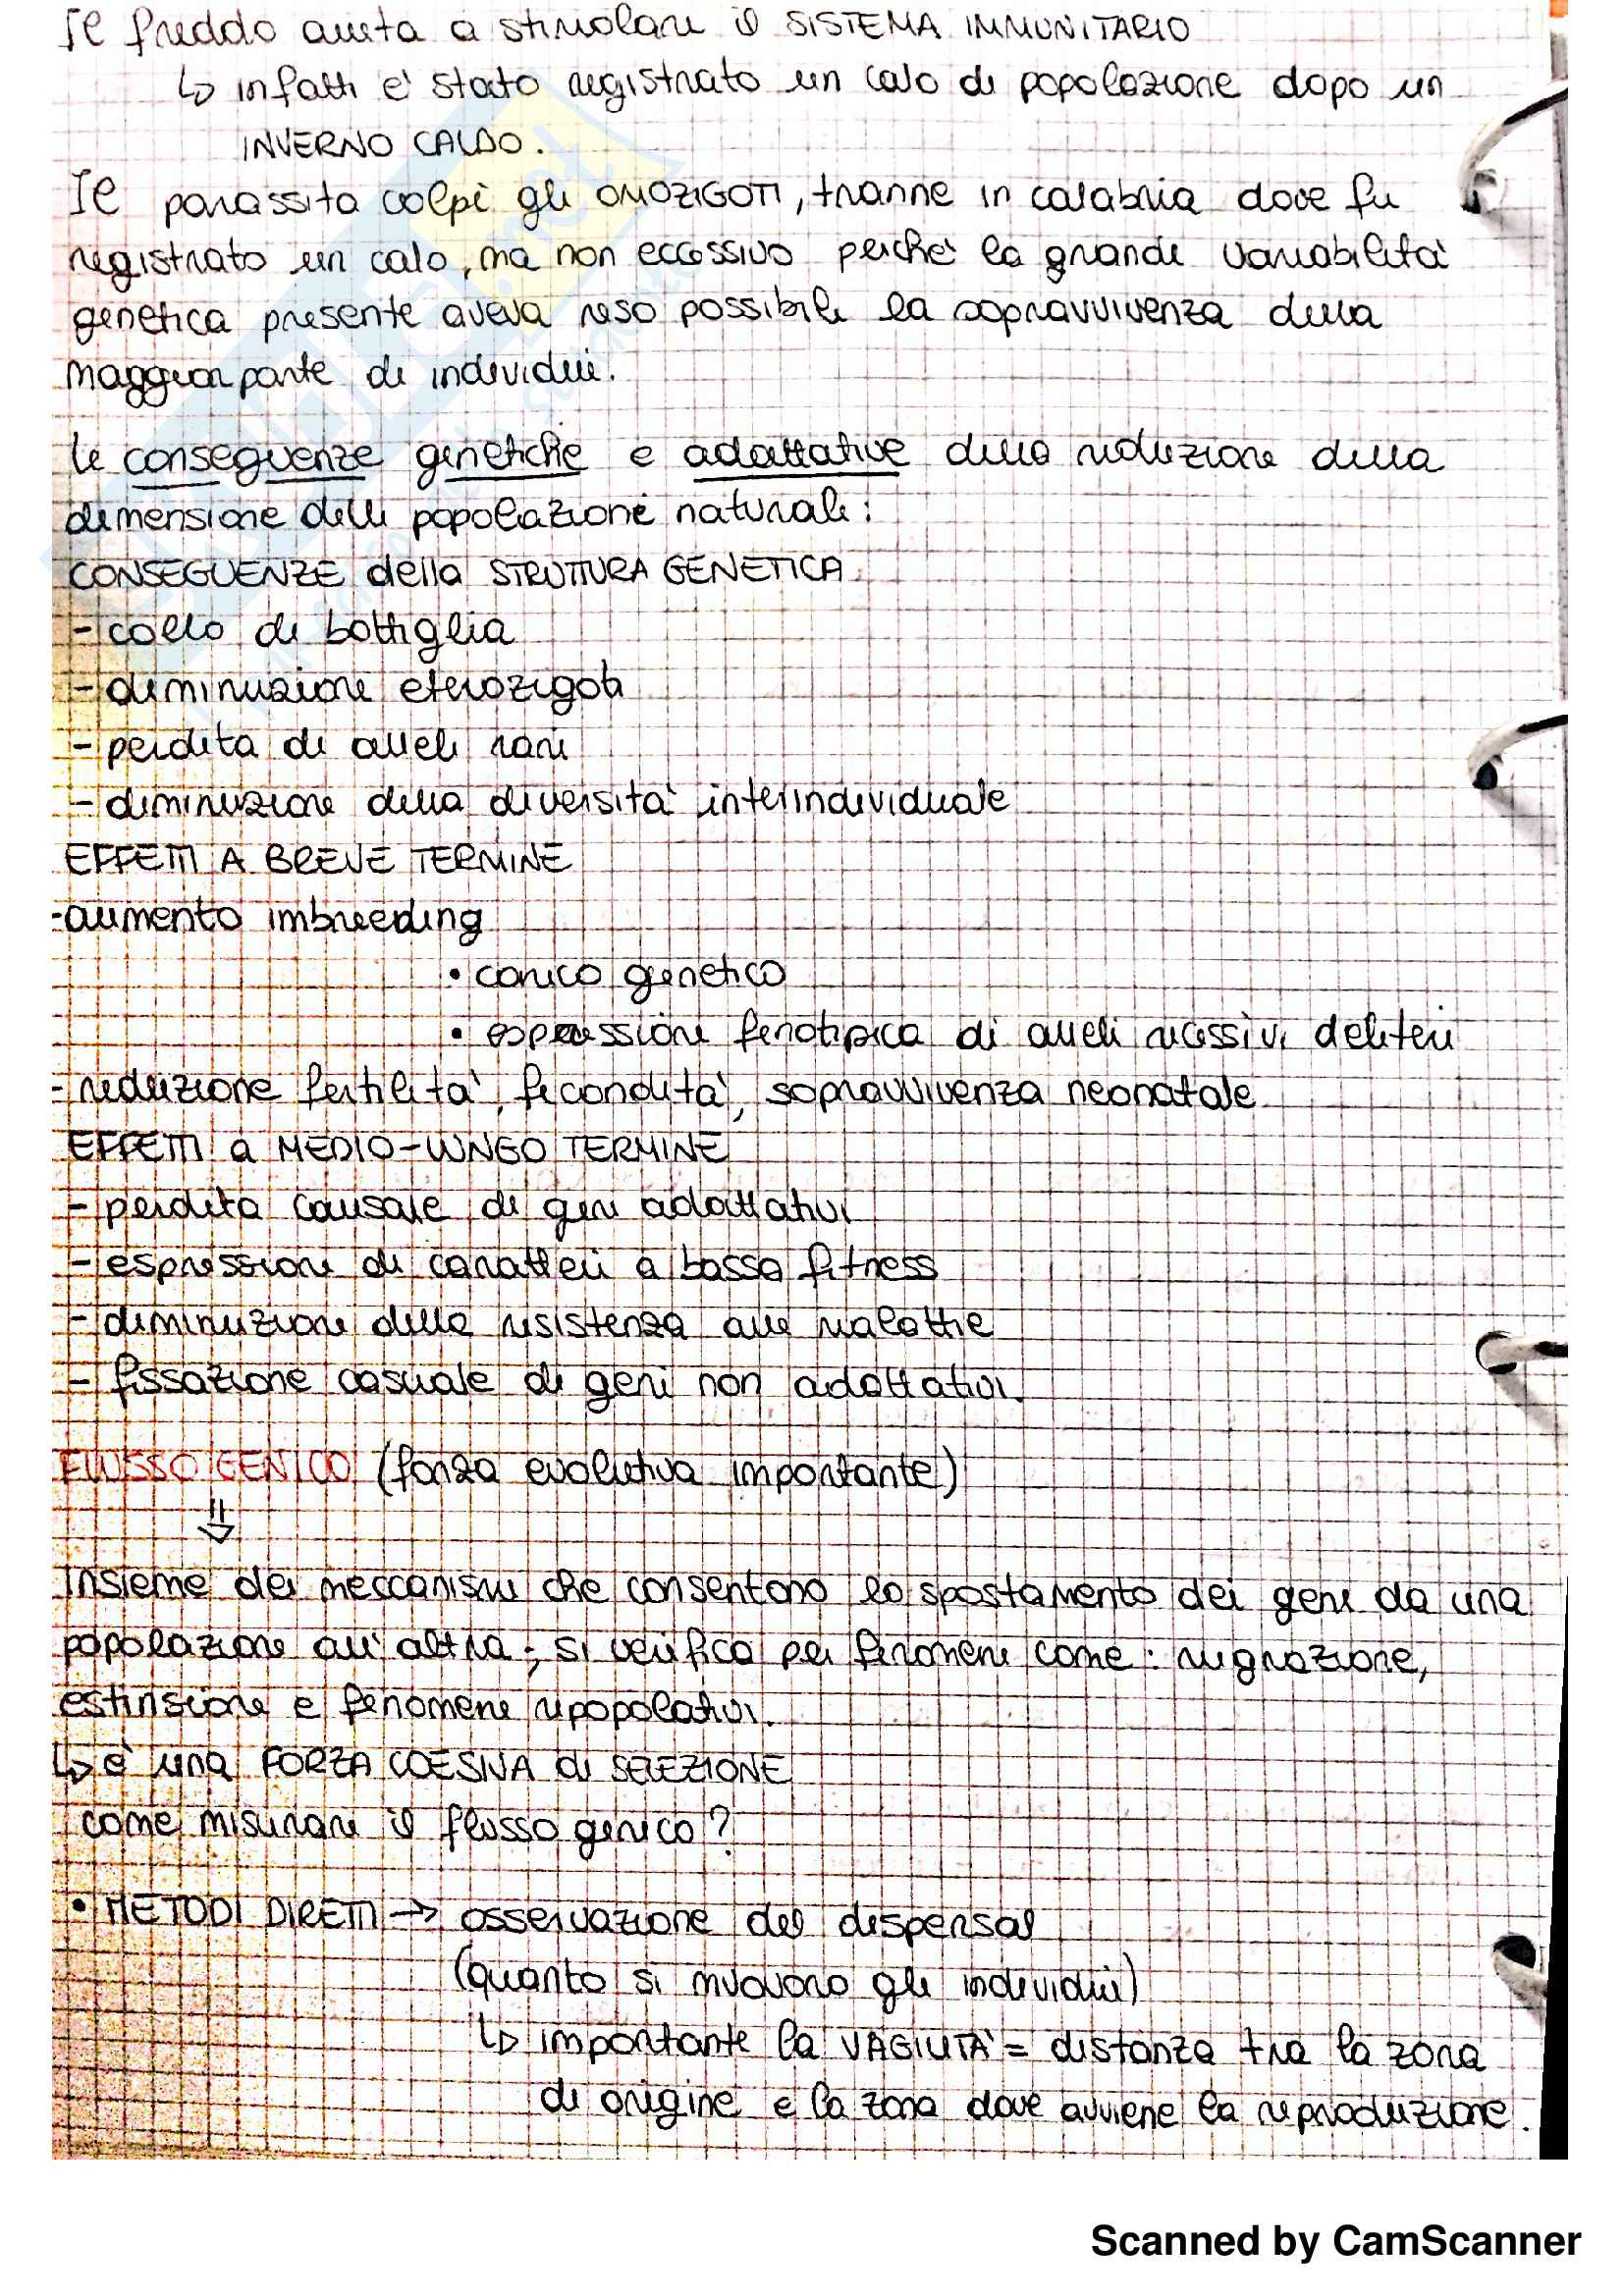 Il freddo aiuta a stimolare il SISTEMA IMMUNITARIO
↳ infatti e' stato registrato un calo di popolazione dopo un
INVERNO CALDO.
Il parassita colpì gli OMOZIGOTI, tranne in calabria dove fu
registrato un calo, ma non eccessivo perche' la grande variabilita'
genetica presente aveva reso possibile la sopravvivenza della
maggior parte di individui.
Le conseguenze genetiche e adattative della riduzione della
dimensione delle popolazione naturali:
CONSEGUENZE della STRUTTURA GENETICA
- collo di bottiglia
- diminuzione eterozigoti
- perdita di alleli rari
- diminuzione della diversita' interindividuale
EFFETTI A BREVE TERMINE
- aumento imbreeding
• carico genetico
• espressione fenotipica di alleli recessivi deleteri
- riduzione fertilita', fecondita', sopravvivenza neonatale
EFFETTI a MEDIO-LUNGO TERMINE
- perdita causale di geni adattativi
- espressione di caratteri a bassa fitness
- diminuzione della resistenza alle malattie
- fissazione casuale di geni non adattativi.
FLUSSO GENICO (forza evolutiva importante)
⇓
Insieme dei meccanismi che consentono lo spostamento dei geni da una
popolazione all'altra; si verifica per fenomeni come: migrazione,
estinsione e fenomeni ripopolativi.
↳ e' una FORZA COESIVA di SELEZIONE
come misurare il flusso genico?
• METODI DIRETTI → osservazione del dispersal
(quanto si muovono gli individui)
↳ importante la VAGILITA' = distanza tra la zona
di origine e la zona dove avviene la riproduzione.
Scanned by CamScanner